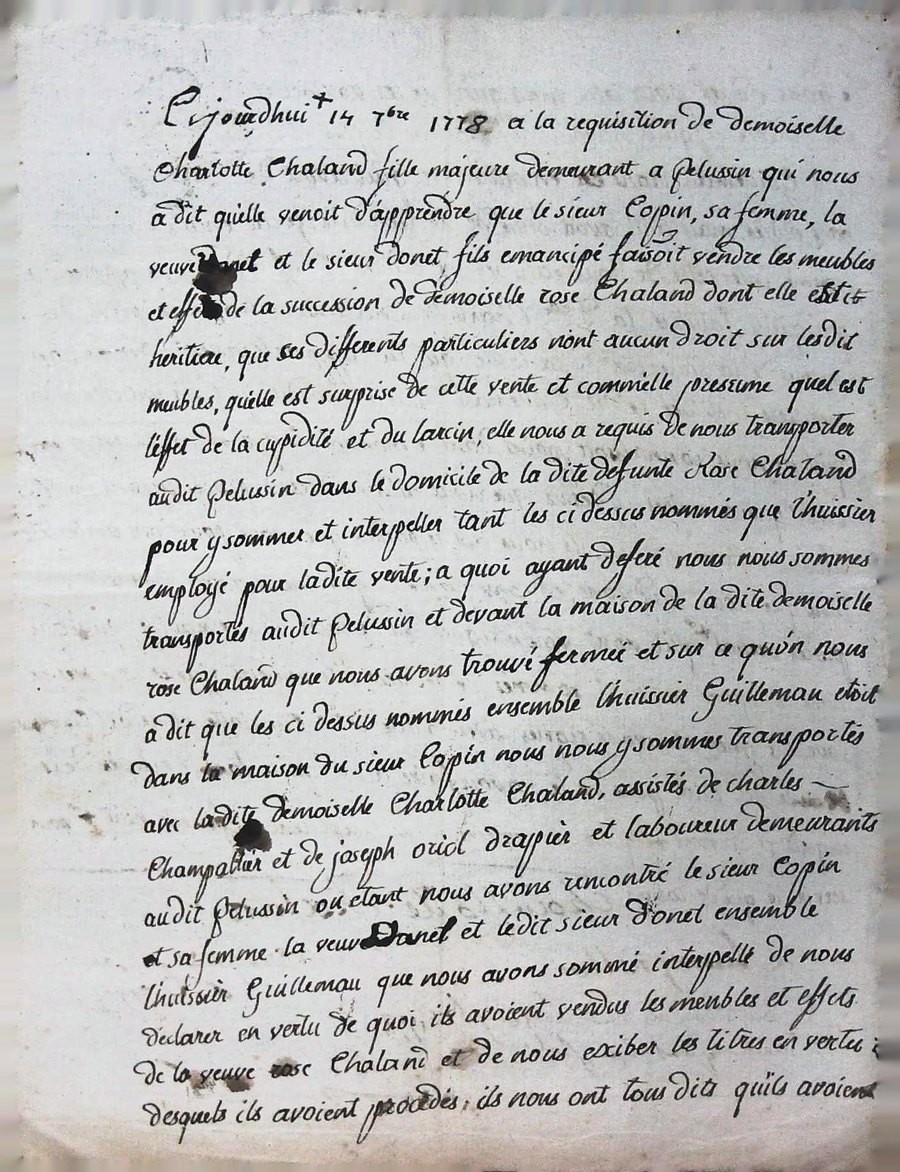 Cejourdhui + 14 7bre 1778 a la requisition de demoiselle
Charlotte Chaland fille majeure demeurant a Pelussin qui nous
a dit quelle venoit d'apprendre que le sieur Copin, sa femme, la
veuve Donet et le sieur donet fils emancipé faisoit vendre les meubles
et effets de la succession de demoiselle rose Chaland dont elle estit
heritiere, que ses differents particuliers nont aucun droit sur lesdit
meubles, quelle est surprise de cette vente et comm'elle presume quel est
l'effet de la cupidité et du larcin, elle nous a requis de nous transporter
audit Pelussin dans le domicile de la dite defunte Rose Chaland
pour y sommer et interpeller tant les ci dessus nommés que l'huissier
employé pour ladite vente; a quoi ayant deferé nous nous sommes
transportés audit Pelussin et devant la maison de la dite demoiselle
rose Chaland que nous avons trouvé fermée et sur ce qu'on nous
a dit que les ci dessus nommés ensemble l'huissier Guillemau etoit
dans la maison du sieur Copin nous nous y sommes transportés
avec ladite demoiselle Charlotte Chaland, assistés de charles
Champallier et de joseph oriol drapier et laboureur demeurants
audit Pelussin ou etant nous avons rencontré le sieur Copin
et sa femme la veuve Donet et ledit sieur donet ensemble
l'huissier Guillemau que nous avons sommé interpellé de nous
declarer en vertu de quoi ils avoient vendus les meubles et effets
de la veuve rose Chaland et de nous exiber les titres en vertu
desquels ils avoient procédés; ils nous ont tous dits qu'ils avoient